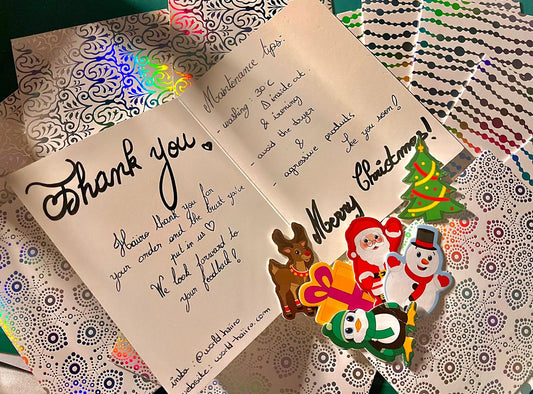 Thank you
Hairo thank you for
your order and the trust you've
put in us
We look forward to
your feedback!
insta: @worldhairo
website: worldhairo.com
Maintenance tips:
- washing 30°C
& inside out
& ironing
- avoid the dryer
&
- agressive products
See you soon!
Merry Christmas!